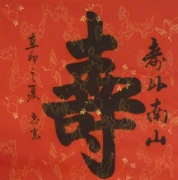 壽比南山
壽
辛卯之夏